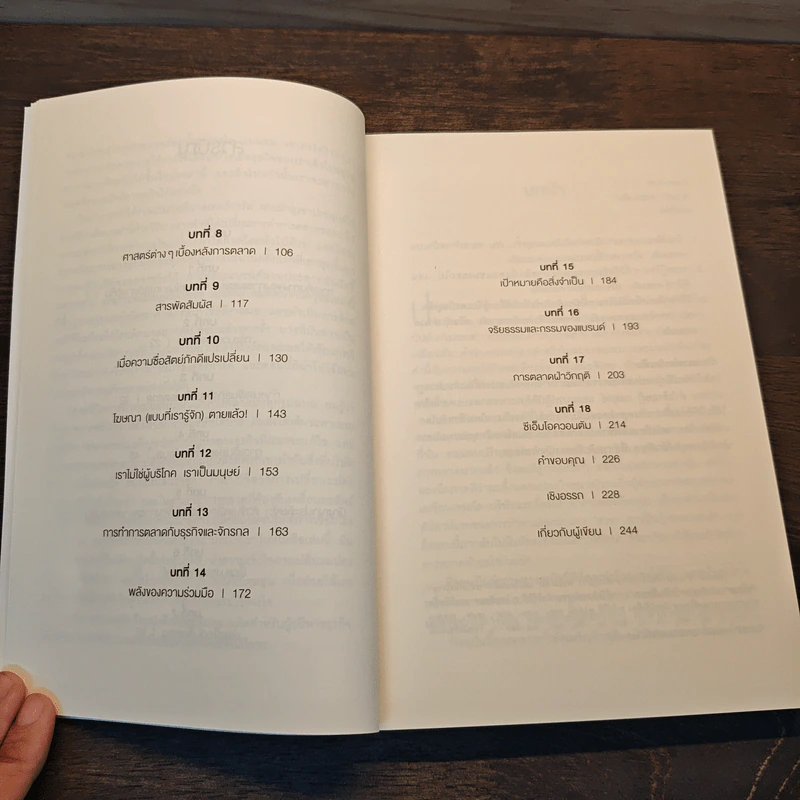 บทที่ 8
ศาสตร์ต่าง ๆ เบื้องหลังการตลาด | 106
บทที่ 9
สารพัดสัมผัส | 117
บทที่ 10
เมื่อความซื่อสัตย์ภักดีแปรเปลี่ยน | 130
บทที่ 11
โฆษณา (แบบที่เรารู้จัก) ตายแล้ว! | 143
บทที่ 12
เราไม่ใช่ผู้บริโภค เราเป็นมนุษย์ | 153
บทที่ 13
การทำการตลาดกับธุรกิจและจักรกล | 163
บทที่ 14
พลังของความร่วมมือ | 172
บทที่ 15
เป้าหมายคือสิ่งจำเป็น | 184
บทที่ 16
จริยธรรมและกรรมของแบรนด์ | 193
บทที่ 17
การตลาดฝ่าวิกฤติ | 203
บทที่ 18
ซีเอ็มโอควอนตัม | 214
คำขอบคุณ | 226
เชิงอรรถ | 228
เกี่ยวกับผู้เขียน | 244